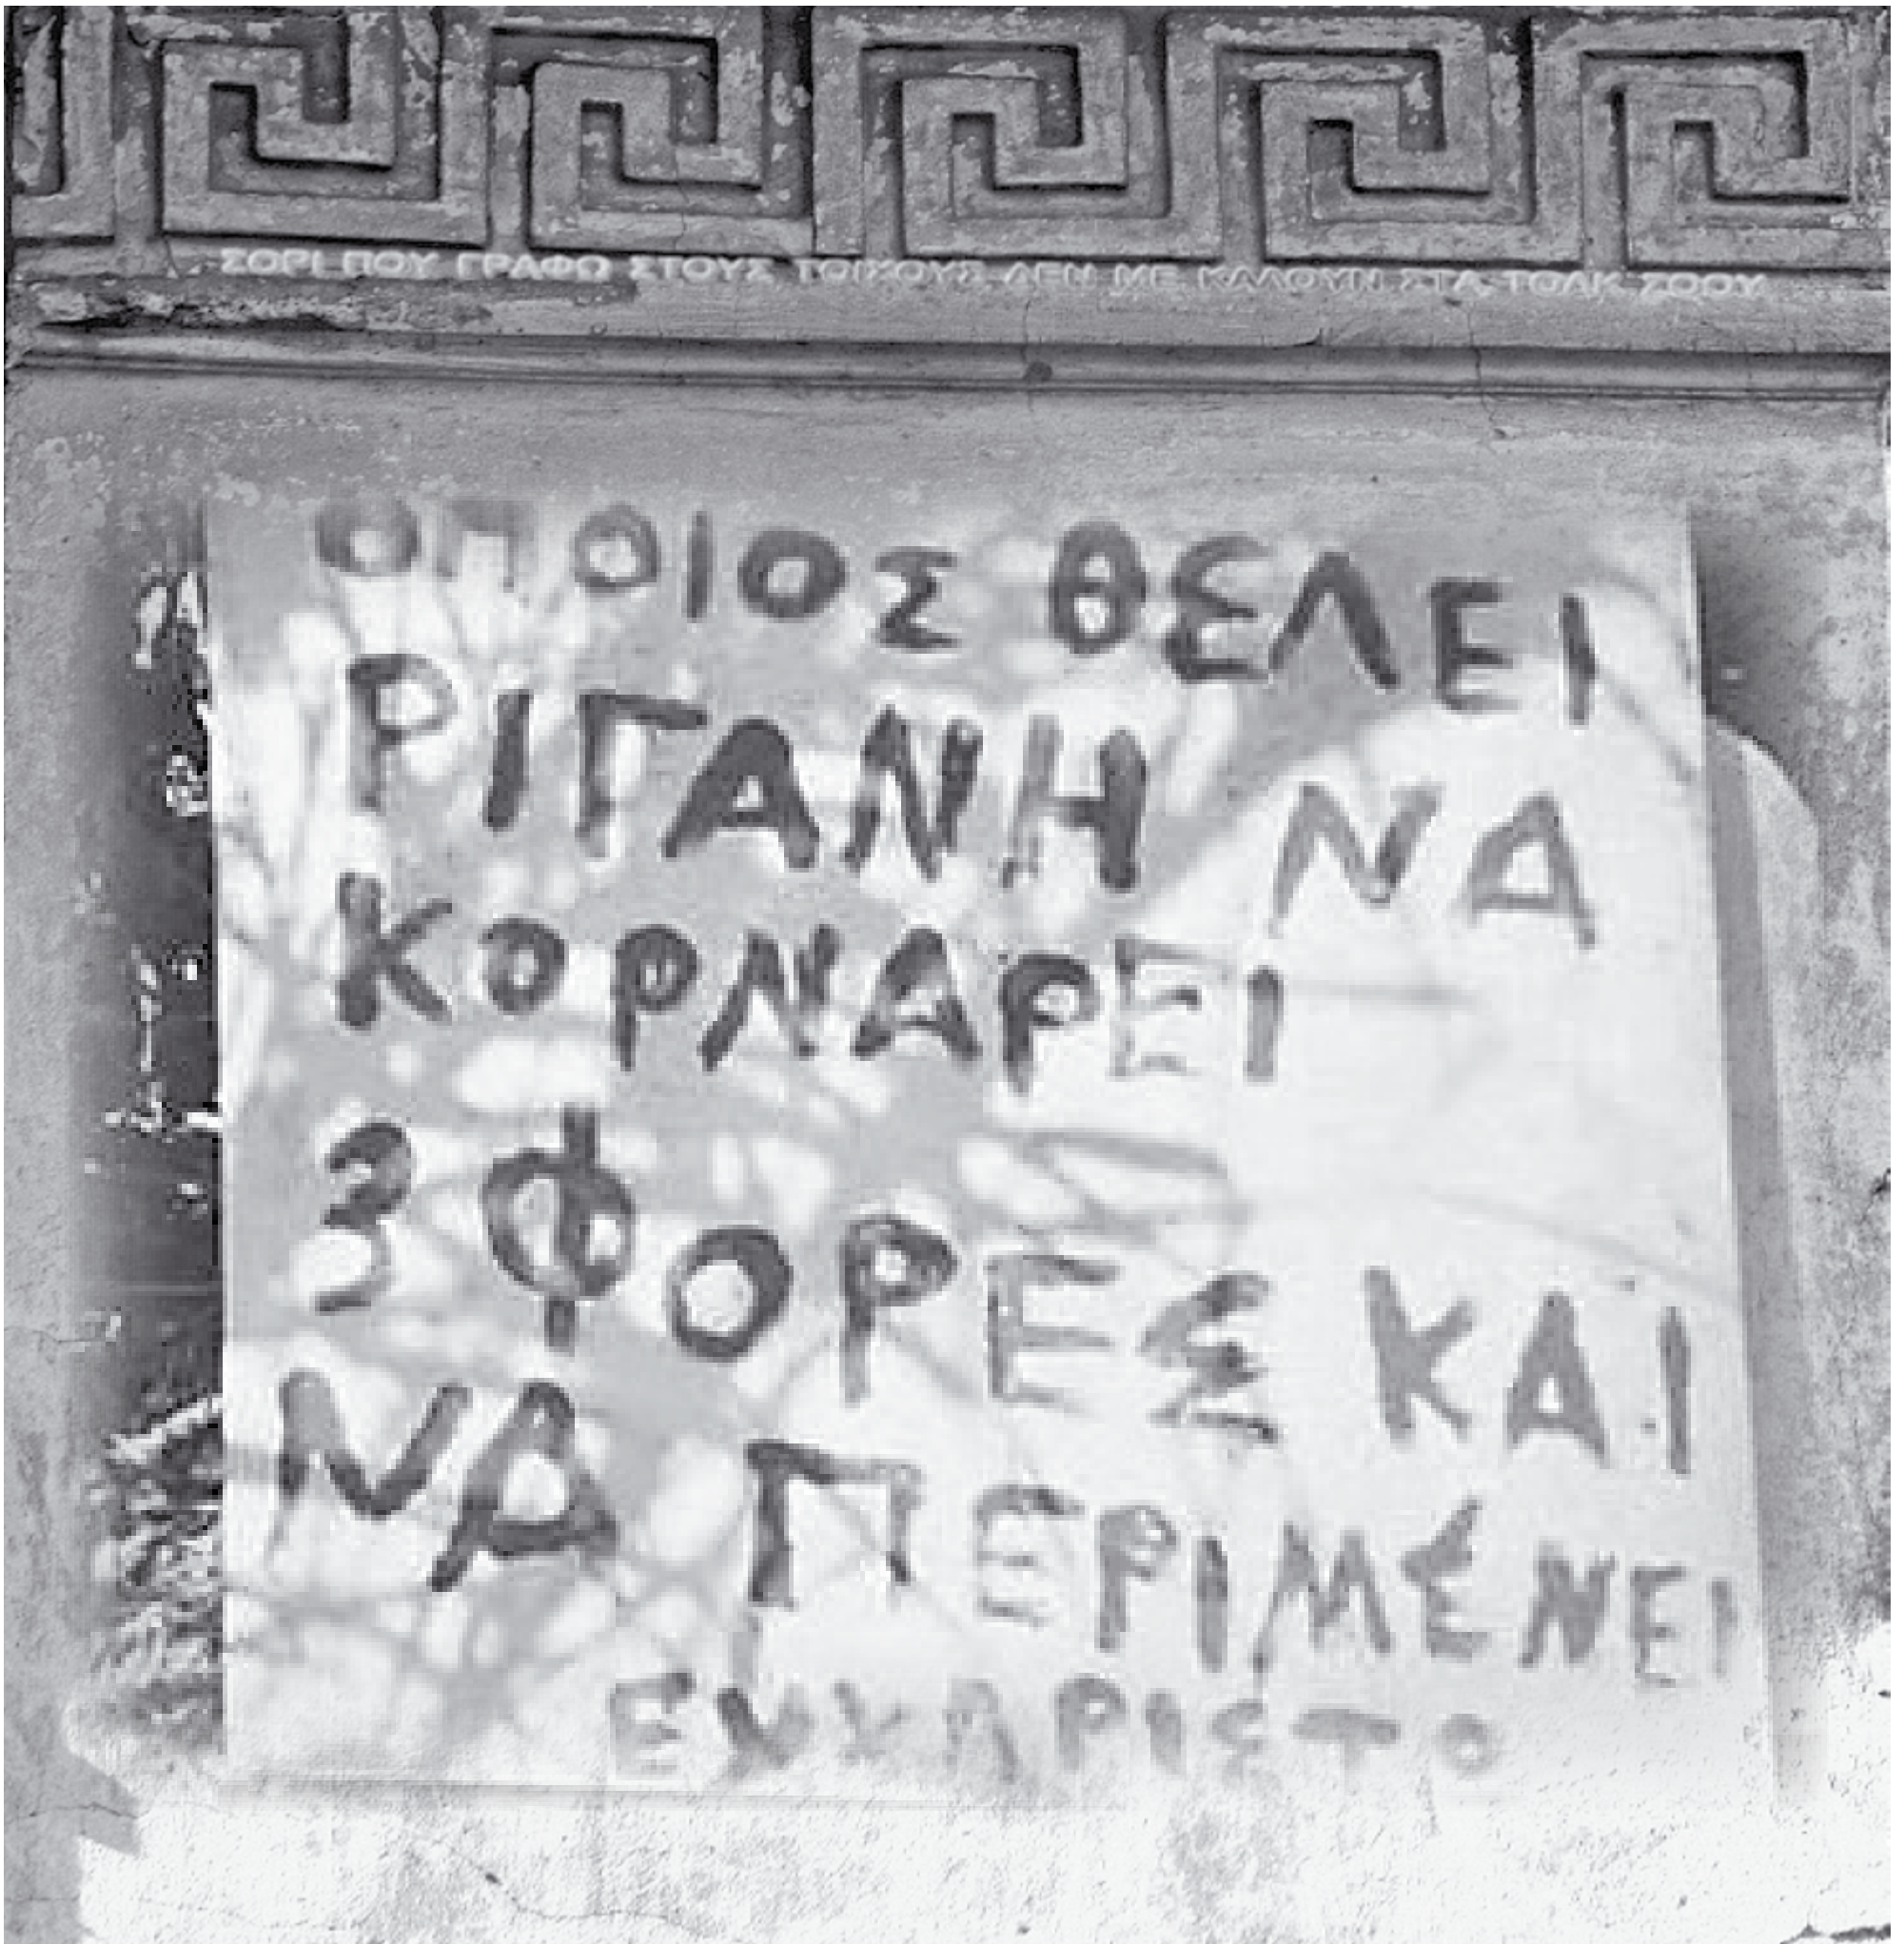 ΣΟΡΙ ΠΟΥ ΓΡΑΦΩ ΣΤΟΥΣ ΤΟΙΧΟΥΣ ΔΕΝ ΜΕ ΚΑΛΟΥΝ ΣΤΑ ΤΟΛΚ ΣΟΟΥ
ΟΠΟΙΟΣ ΘΕΛΕΙ
ΡΙΓΑΝΗ ΝΑ
ΚΟΡΝΑΡΕΙ
3 ΦΟΡΕΣ ΚΑΙ
ΝΑ ΠΕΡΙΜΈΝΕΙ
ΕΥΧΑΡΙΣΤΟ